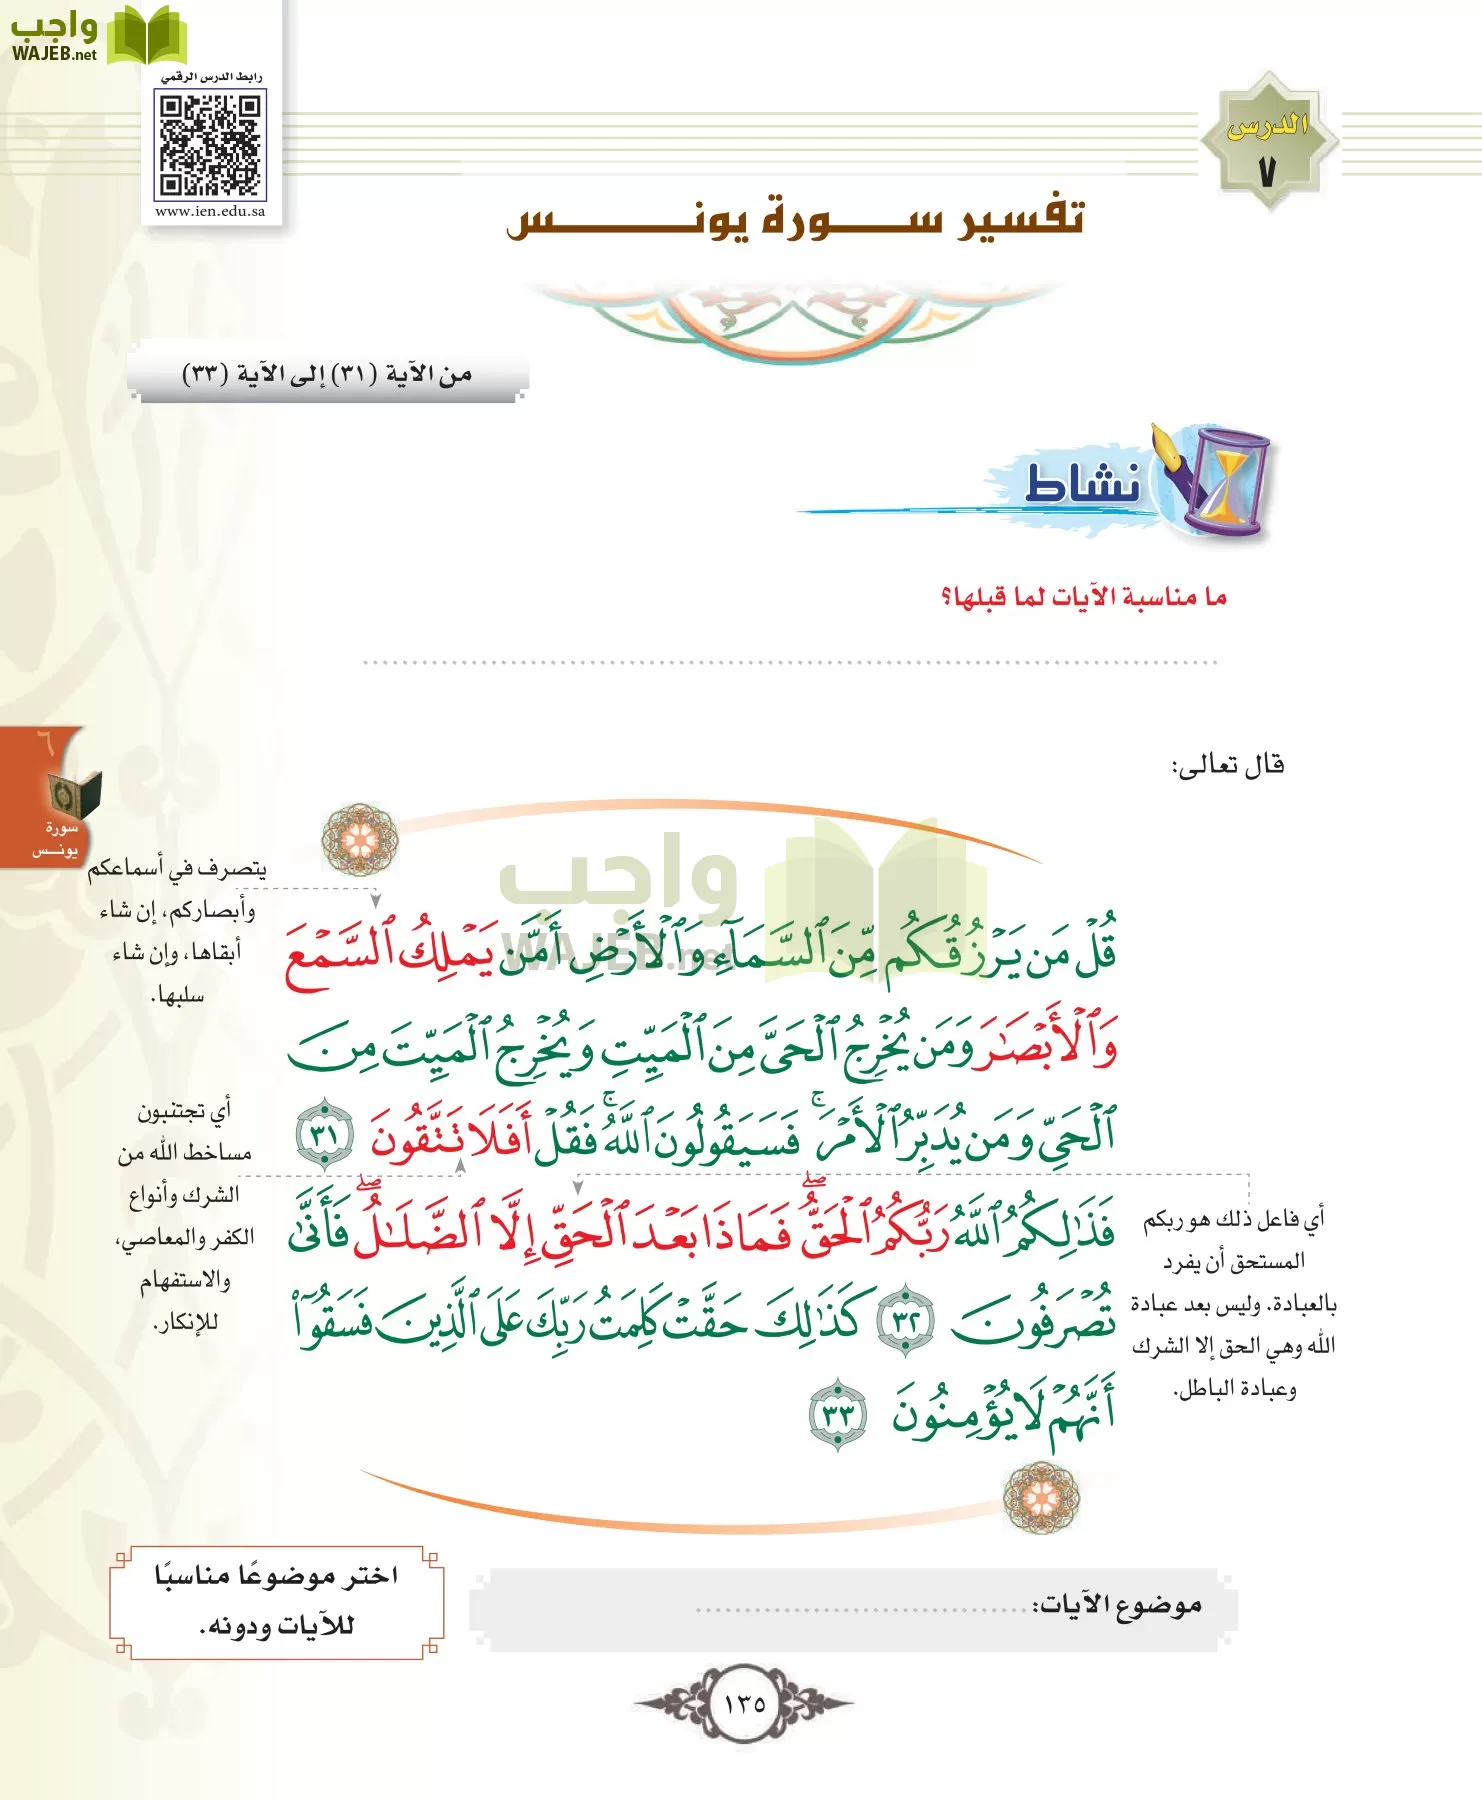 واجب
WAJEB.net
رابط الدرس الرقمي
www.ien.edu.sa
الدرس
٧
تفسير سورة يونس
من الآية (٣١) إلى الآية (٣٣)
نشاط
ما مناسبة الآيات لما قبلها؟
قال تعالى:
٦
سورة
يونس
واجب
WAJEB.net
قُلْ مَن يَرْزُقُكُم مِّنَ ٱلسَّمَآءِ وَٱلْأَرْضِ أَمَّن يَمْلِكُ ٱلسَّمْعَ
وَٱلْأَبْصَٰرَ وَمَن يُخْرِجُ ٱلْحَىَّ مِنَ ٱلْمَيِّتِ وَيُخْرِجُ ٱلْمَيِّتَ مِنَ
ٱلْحَىِّ وَمَن يُدَبِّرُ ٱلْأَمْرَ ۚ فَسَيَقُولُونَ ٱللَّهُ ۚ فَقُلْ أَفَلَا تَتَّقُونَ ٣١
فَذَٰلِكُمُ ٱللَّهُ رَبُّكُمُ ٱلْحَقُّ ۖ فَمَاذَا بَعْدَ ٱلْحَقِّ إِلَّا ٱلضَّلَٰلُ ۖ فَأَنَّىٰ
تُصْرَفُونَ ٣٢ كَذَٰلِكَ حَقَّتْ كَلِمَتُ رَبِّكَ عَلَى ٱلَّذِينَ فَسَقُوٓا۟
أَنَّهُمْ لَا يُؤْمِنُونَ ٣٣
يتصرف في أسماعكم
وأبصاركم، إن شاء
أبقاها، وإن شاء
سلبها.
أي تجتنبون
مساخط الله من
الشرك وأنواع
الكفر والمعاصي،
والاستفهام
للإنكار.
أي فاعل ذلك هو ربكم
المستحق أن يفرد
بالعبادة. وليس بعد عبادة
الله وهي الحق إلا الشرك
وعبادة الباطل.
موضوع الآيات: ..................................
اختر موضوعًا مناسبًا
للآيات ودونه.
١٣٥